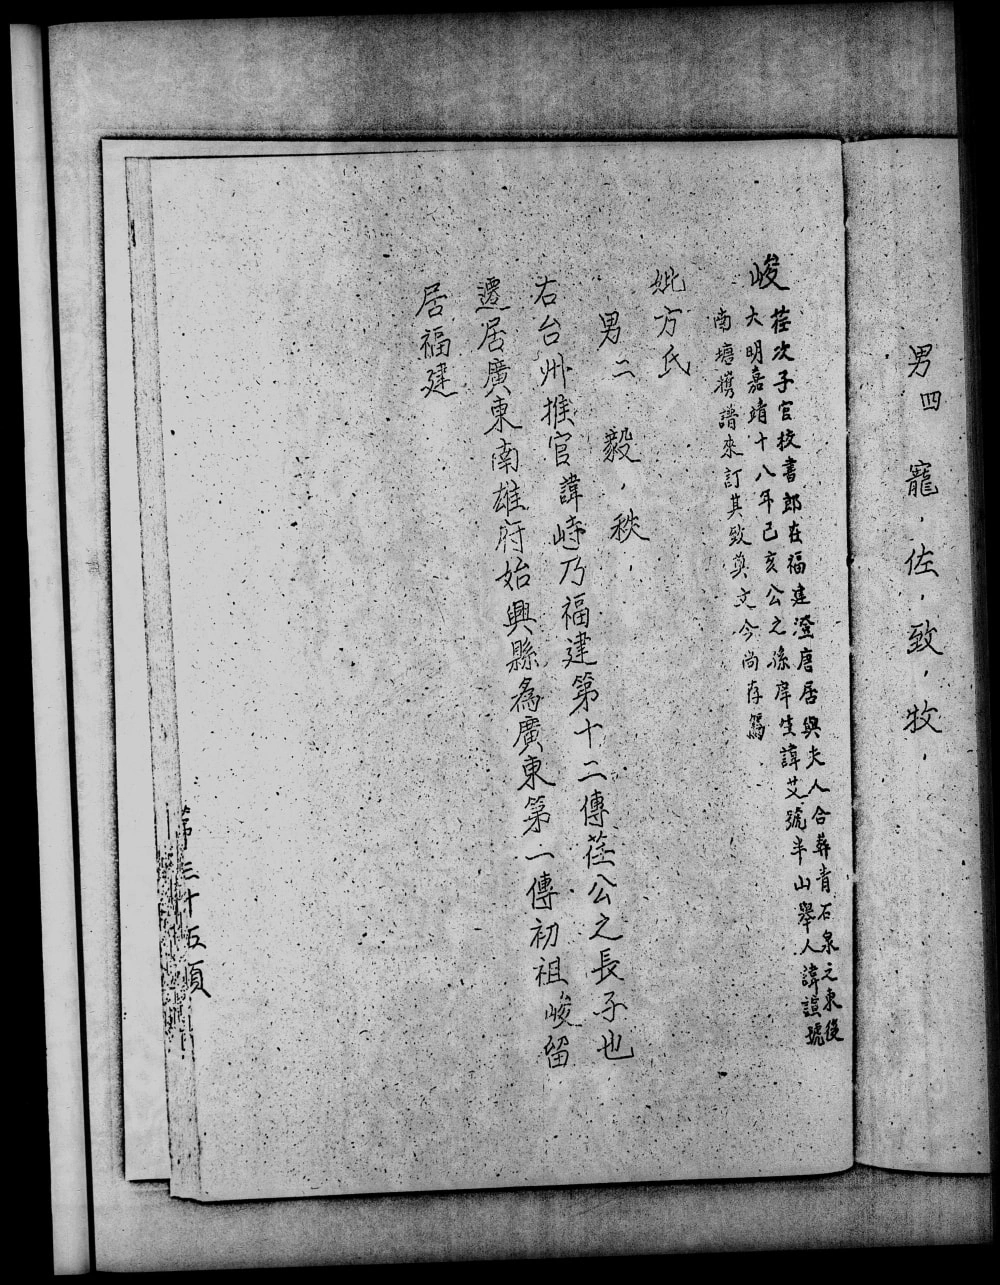 男四 寵，佐，致，牧，
峻
荏次子官校書郎在福建澄唐居與夫人合葬青石泉之東後
大明嘉靖十八年己亥公之孫庠生諱艾號半山舉人諱諠號
南塘携譜來訂其致奠文今尚存焉
妣方氏
男二 毅，秩，
右台州推官諱峙乃福建第十二傳荏公之長子也
遷居廣東南雄府始興縣為廣東第一傳初祖 峻留
居福建
第三十五頁